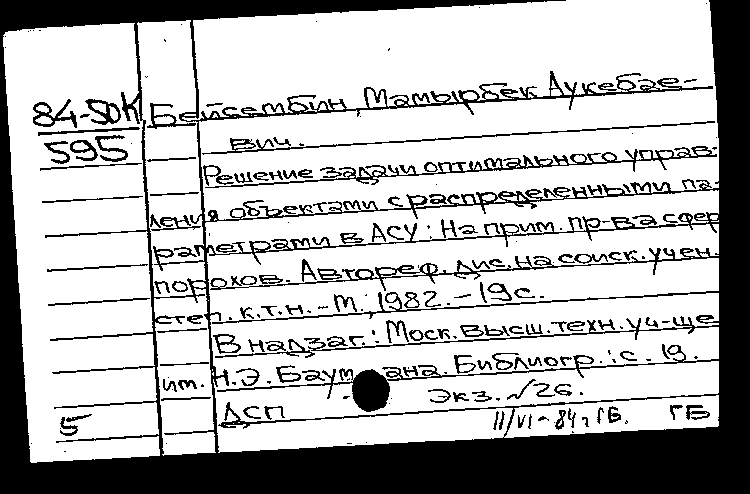 84-50К Бейсембин, Мамырбек Аукебае-
595 вич.
Решение задачи оптимального управ-
ления объектами с распределенными па-
раметрами в АСУ: На прим. пр-ва сфер.
порохов. Автореф. дис. на соиск. учен.
степ. к.т.н. - М., 1982. - 19с.
В надзаг.: Моск. высш. техн. уч-ще
им. Н.Э. Баумана. Библиогр.: с. 19.
Экз. №26.
5 ДСП
11/VI - 84г. ГБ. ГБ